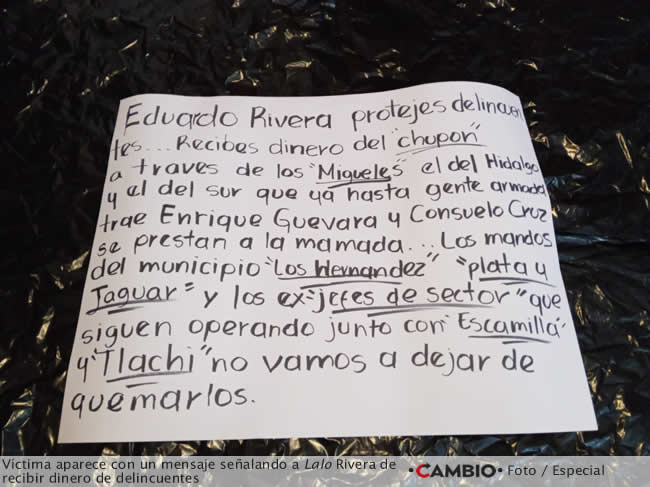 Eduardo Rivera protejes delincuen
tes... Recibes dinero del "chupon"
a traves de los "Migueles" el del Hidalgo
y el del sur que ya hasta gente armada
trae Enrique Guevara y Consuelo Cruz
se prestan a la mamada... Los mandos
del municipio "Los Hernandez" "plata y
Jaguar" y los ex "jefes de sector" que
siguen operando junto con "Escamilla"
y "Tlachi" no vamos a dejar de
quemarlos.
Víctima aparece con un mensaje señalando a Lalo Rivera de
recibir dinero de delincuentes
•CAMBIO• Foto / Especial